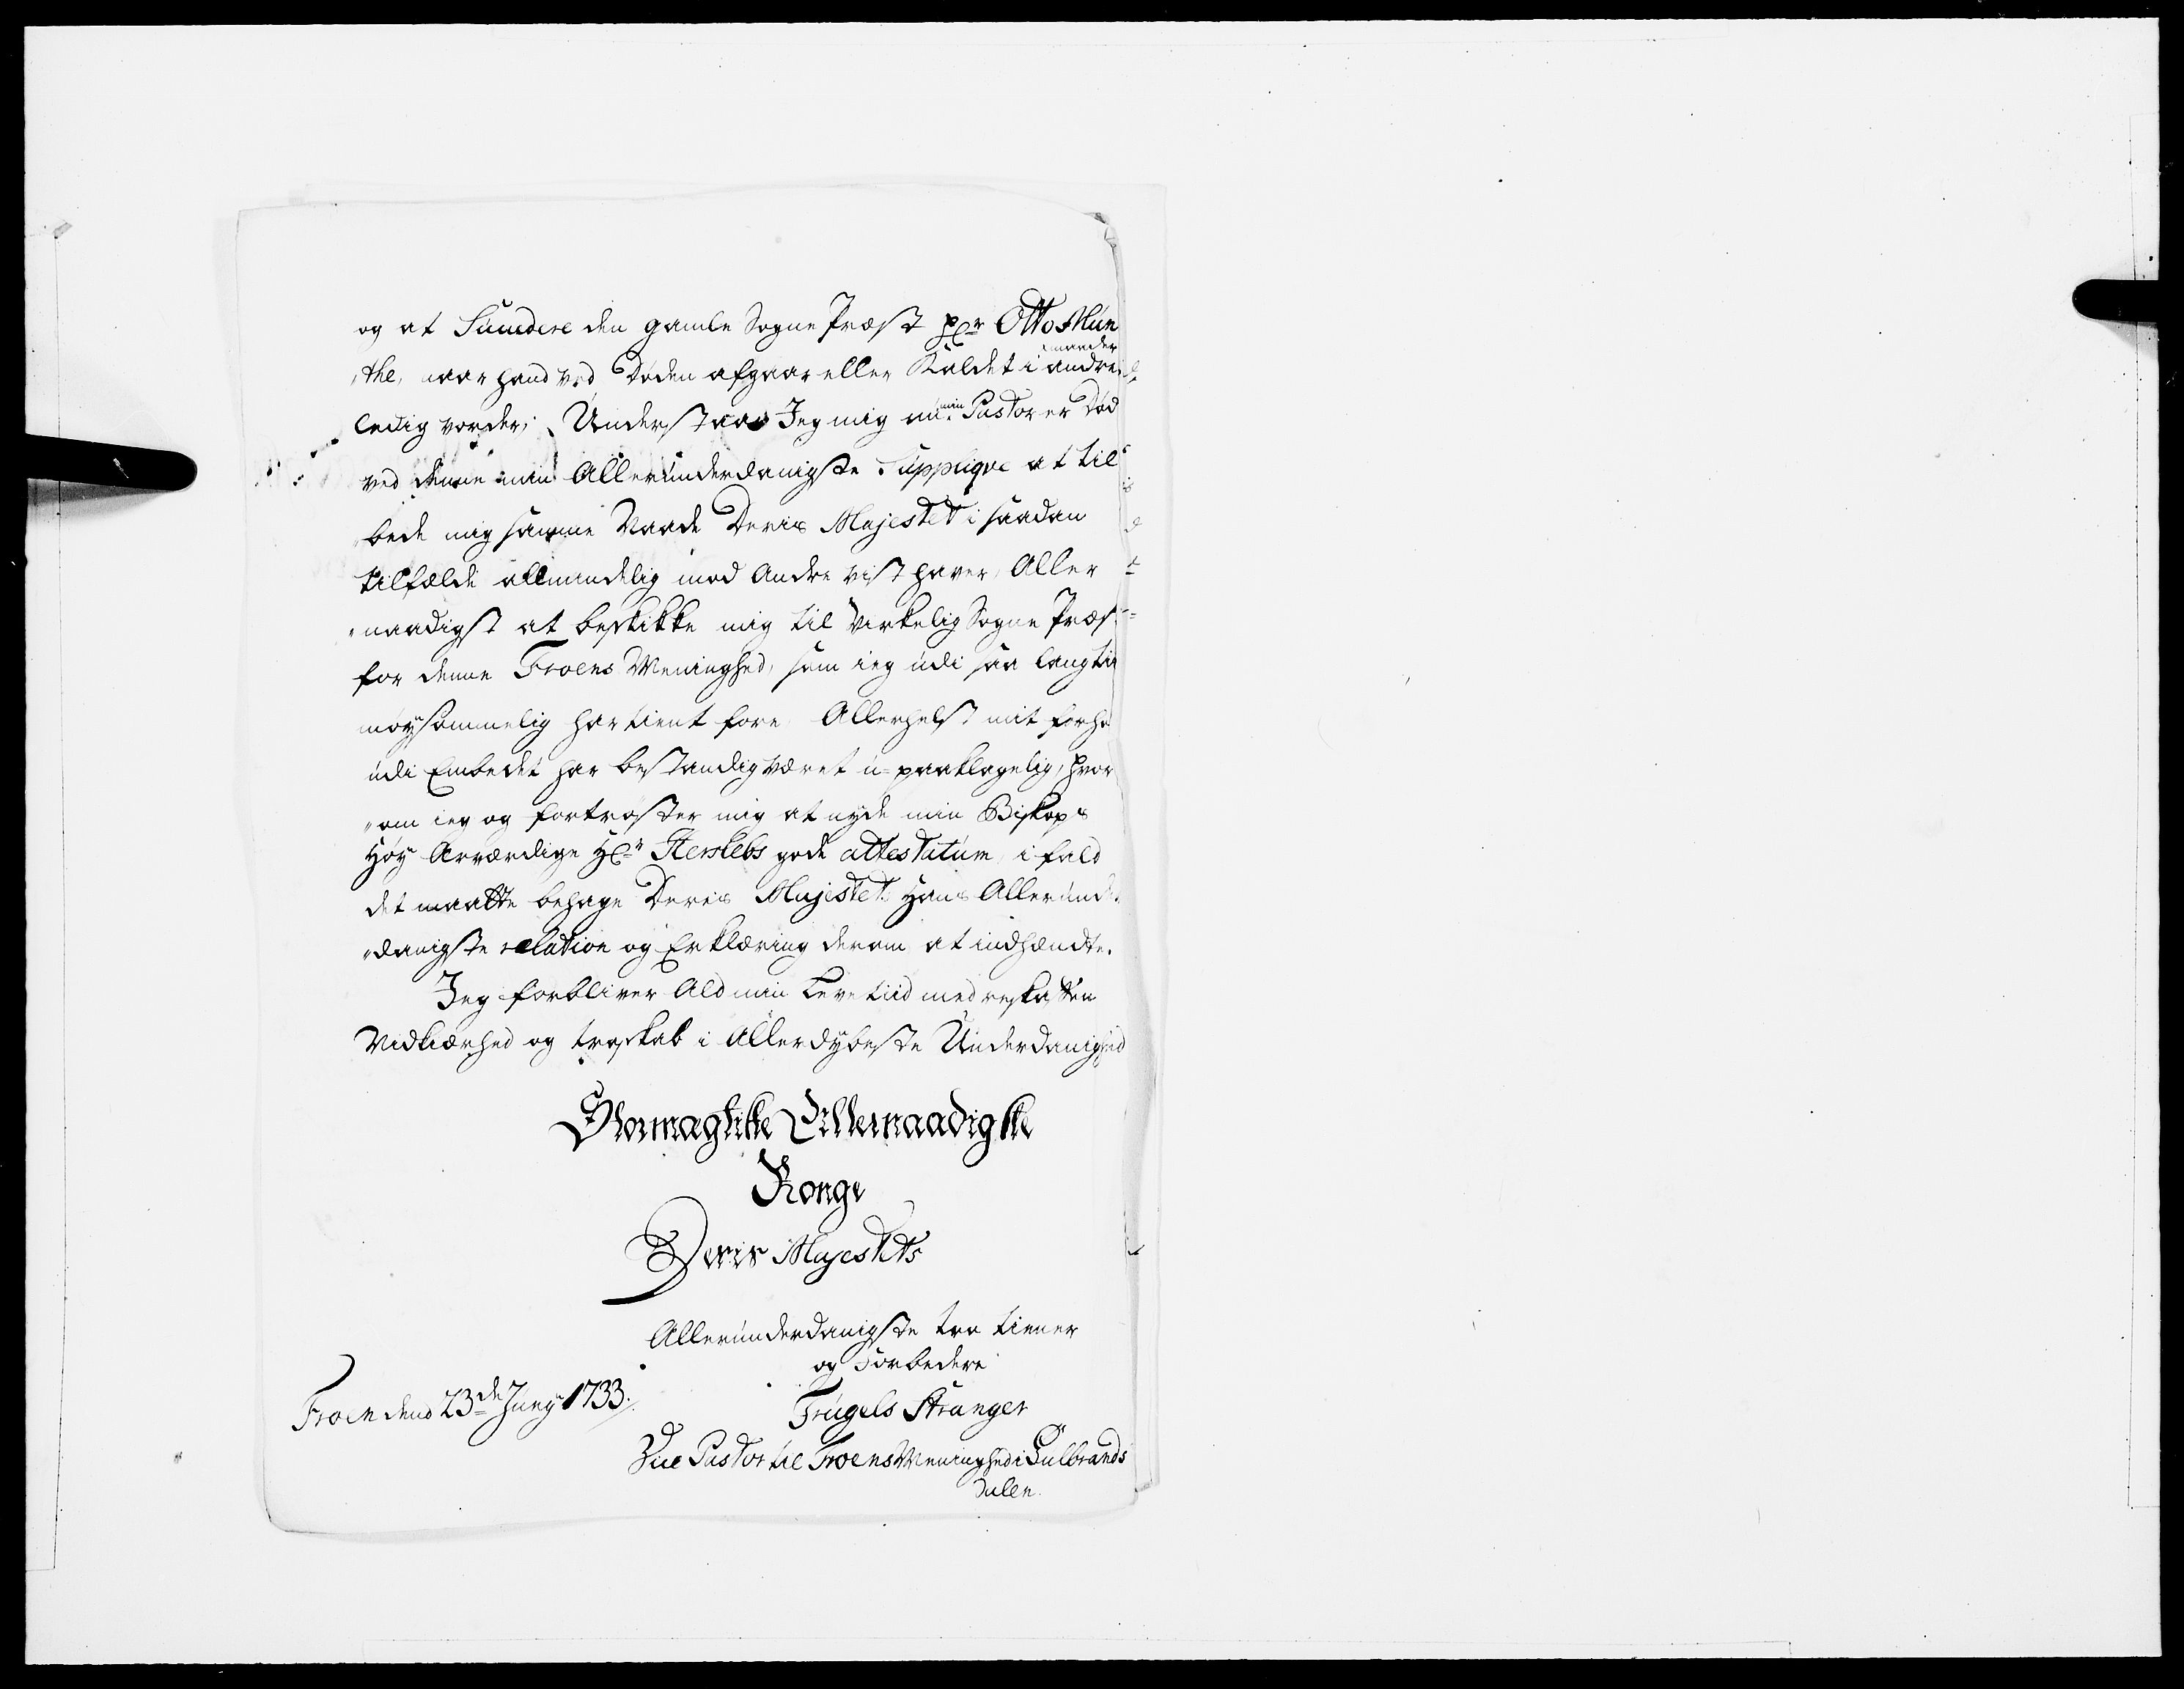 og at Succedere den gamle Sogne Præst Hr Otto Mun
the, naar hand ved Døden afgaar eller Kaldet i andre
maader
ledig vorder; Understaar Jeg mig nu min Pastor er Død
ved denne min Allerunderdanigste Supplique at til
bede mig samme Naade Deris Majestet i saadan
tilfælde allmindelig mod Andre vist haver, Aller
naadigst at beskikke mig til virkelig Sogne Præst
for denne Froens Meenighed, som ieg udi saa lang tid
møysommelig har tient fore, Allerhelst mit forho
udi Embedet har bestandig været u-paaklagelig, hvor
om ieg og fortrøster mig at nyde min Biskops
Høy Ærværdige Hr Herslebs gode attestatum, i fald
det maatte behage Deris Majestet Hans Allerunder
danigste relation og Erklæring derom at indhændte.
Jeg forbliver Ald min Leve tiid med
Nidkiærhed og troskab i Allerdybeste Underdanighed
Stormagtiste Allernaadigste
Konge
Deris Majestets
Allerunderdanigste troe tiener
og Forbedere
Froen dend 23de Juny 1733.
Trugels Stranger
Vice Pastor til Froens Meenighed i Gulbrands
dalen.